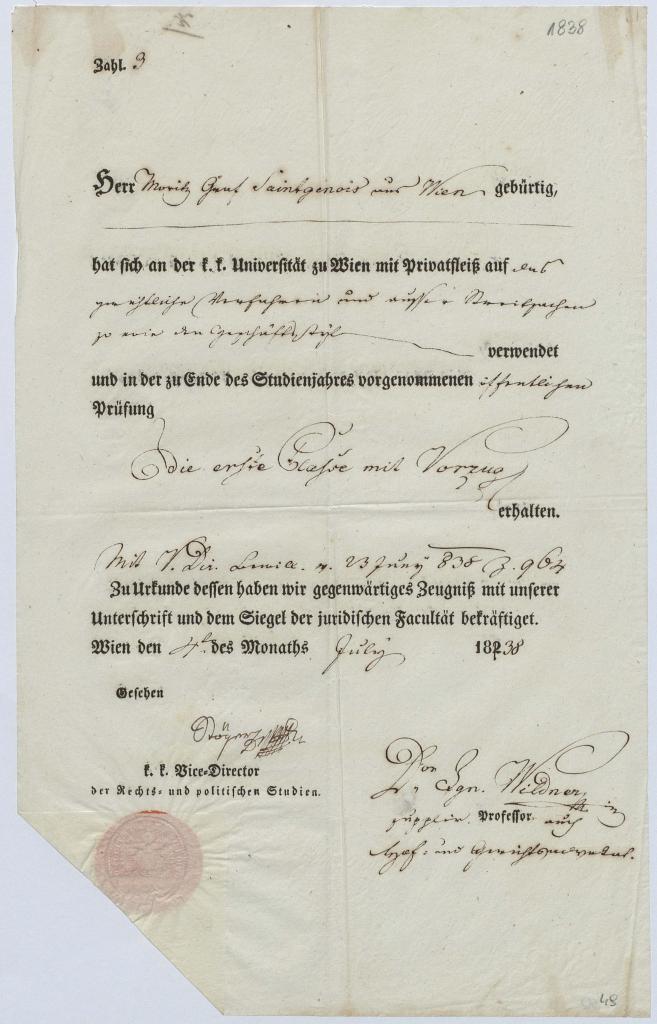 1838
Zahl. 3
Herr Moritz Graf Saintgenois aus Wien gebürtig,
hat sich an der k. k. Universität zu Wien mit Privatfleiß auf das
gerichtliche Verfahren in und ausser Streitsachen
so wie den Geschäftsstyl verwendet
und in der zu Ende des Studienjahres vorgenommenen öffentlichen
Prüfung
die erste Classe mit Vorzug
erhalten.
Mit V. Dir. 23 Juny 838 Z. 964
Zu Urkunde dessen haben wir gegenwärtiges Zeugniß mit unserer
Unterschrift und dem Siegel der juridischen Facultät bekräftiget.
Wien den 4t. des Monaths July 1838
Gesehen
k. k. Vice-Director
der Rechts- und politischen Studien.
Dor Ign. Wildner
supplir. Professor auch
Hof- und Gerichtsadvokat.
48